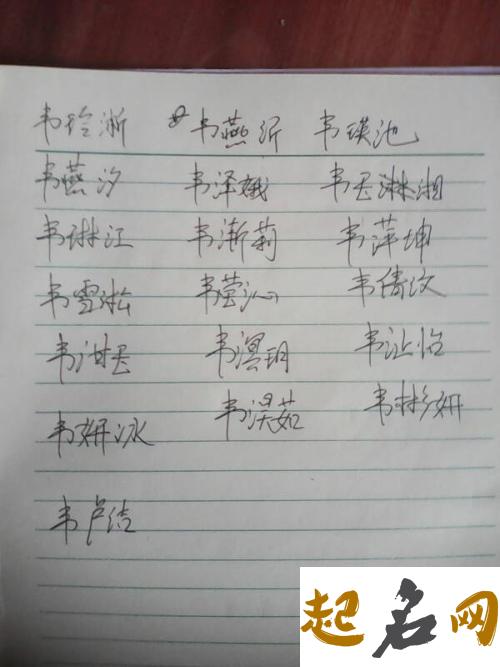 韦玲浙 韦燕沂 韦瑛池
韦燕汐 韦泽娥 韦昱淋湘
韦琳江 韦渐莉 韦萍坤
韦雪淞 韦莹沁 韦倩汶
韦湛昱 韦淏玥 韦沚怡
韦淏茹 韦彬妍
韦妍冰
韦卢洁
起名网